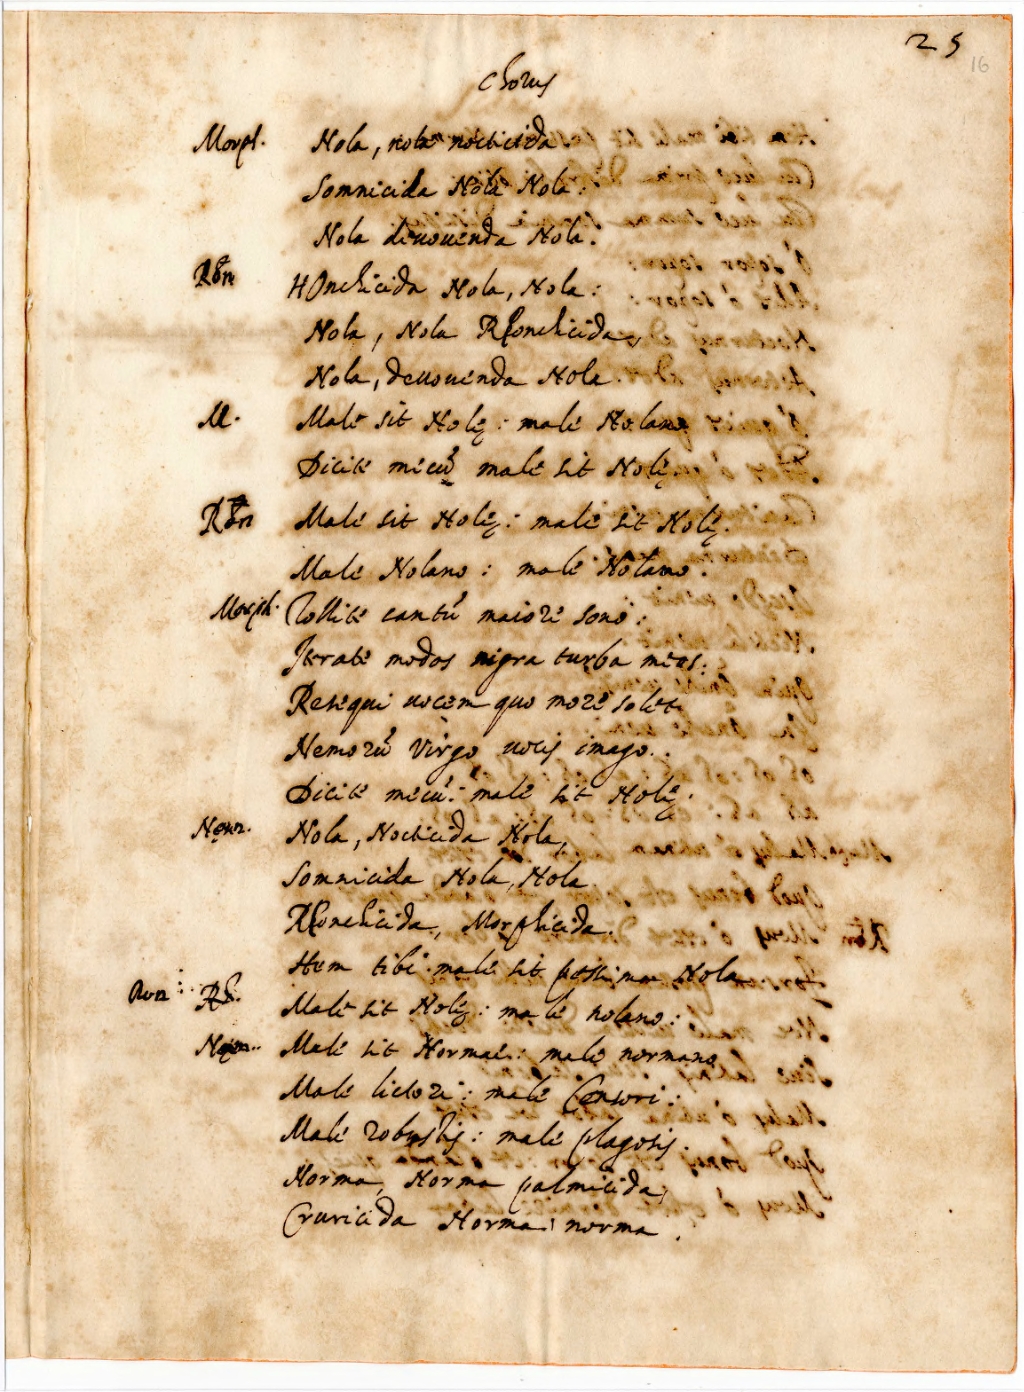 25
16
Chorus
Morph. Nola, nola nocticida
Somnicida Nola Nola.
Nola deuouenda Nola.
Rhōn Nola, Nola:
Nola, Nola Rhonchicida,
Nola, deuouenda Nola.
M. Male sit Nolę: male Nolano
Dicite mecū male sit Nolę.
Rhōn Male sit Nolę: male sit Nolę.
Male Nolano: male Nolano.
Morph. Tollite cantū maiore sono:
Iterate modos nigra turba meos.
Resequi uocem quo more solet
Nemorū Virgo uocis imago.
Dicite mecū: male sit Nolę.
Nola, Nocticida Nola,
Somnicida Nola, Nola.
Rhonchicida, Morphicida.
Hem tibi male sit pessima Nola
Male sit Nolę: male nolano:
Male sit Normae: male normano
Male lictori: male Censori:
Male robustis: male plagosis.
Norma, Norma palmicida,
Cruricida Norma norma.